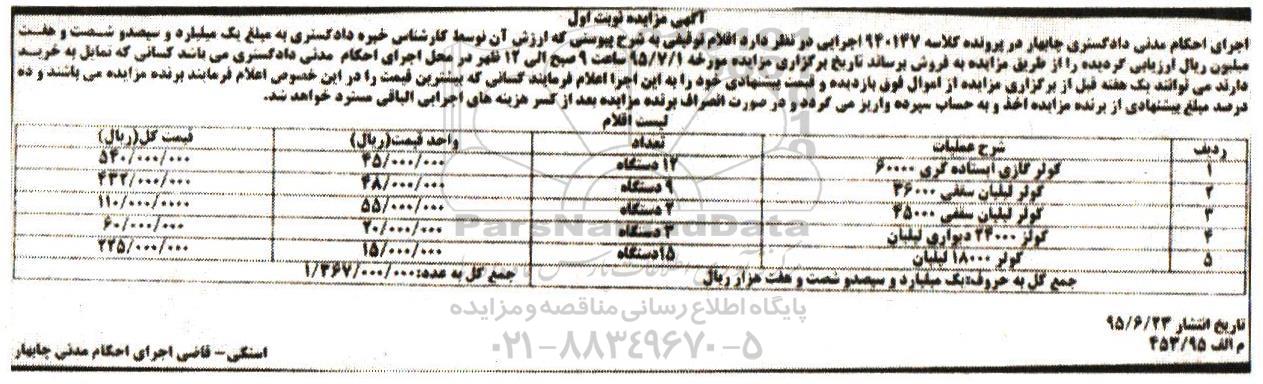 آگهی مزایده نوبت اول
اجرای احکام مدنی دادگستری چابهار در پرونده کلاسه ۹۴۰۱۳۷ اجرایی در نظر دارد اقلام توقیفی به شرح پیوستی که ارزش آن توسط کارشناس خبره دادگستری به مبلغ یک میلیارد و سیصدو شصت و هفت
میلیون ریال ارزیابی گردیده را از طریق مزایده به فروش برساند تاریخ برگزاری مزایده مورخه ۹۵/۷/۱ ساعت ۹ صبح الی ۱۲ ظهر در محل اجرای احکام مدنی دادگستری می باشد کسانی که تمایل به خرید
دارند می توانند یک هفته قبل از برگزاری مزایده از اموال فوق بازدیده و قیمت پیشنهادی خود را به این اجرا اعلام فرمایند کسانی که بیشترین قیمت را در این خصوص اعلام فرمایند برنده مزایده می باشند و ده
درصد مبلغ پیشنهادی از برنده مزایده اخذ و به حساب سپرده واریز می گردد و در صورت انصراف برنده مزایده بعد از کسر هزینه های اجرایی الباقی مسترد خواهد شد.
لیست اقلام
ردیف شرح عملیات تعداد واحد قیمت(ریال) قیمت کل(ریال)
۱ کولر گازی ایستاده گری ۶۰۰۰۰ ۱۲ دستگاه ۴۵/۰۰۰/۰۰۰ ۵۴۰/۰۰۰/۰۰۰
۲ کولر لیلیان سقفی ۳۶۰۰۰ ۹ دستگاه ۴۸/۰۰۰/۰۰۰ ۴۳۲/۰۰۰/۰۰۰
۳ کولر لیلیان سقفی ۴۵۰۰۰ ۲ دستگاه ۵۵/۰۰۰/۰۰۰ ۱۱۰/۰۰۰/۰۰۰۰
۴ کولر ۲۴۰۰۰ دیواری لیلیان ۳ دستگاه ۲۰/۰۰۰/۰۰۰ ۶۰/۰۰۰/۰۰۰
۵ کولر ۱۸۰۰۰ لیلیان ۱۵دستگاه ۱۵/۰۰۰/۰۰۰ ۲۲۵/۰۰۰/۰۰۰
جمع کل به حروف:یک میلیارد و سیصدو شصت و هفت هزار ریال جمع کل به عدد:۱/۳۶۷/۰۰۰/۰۰۰
تاریخ انتشار ۹۵/۶/۲۳
م الف ۴۵۳/۹۵
استکی- قاضی اجرای احکام مدنی چابهار
ParsNamadData
پایگاه اطلاع رسانی مناقصه و مزایده
۰۲۱-۸۸۳۴۹۶۷۰-۵